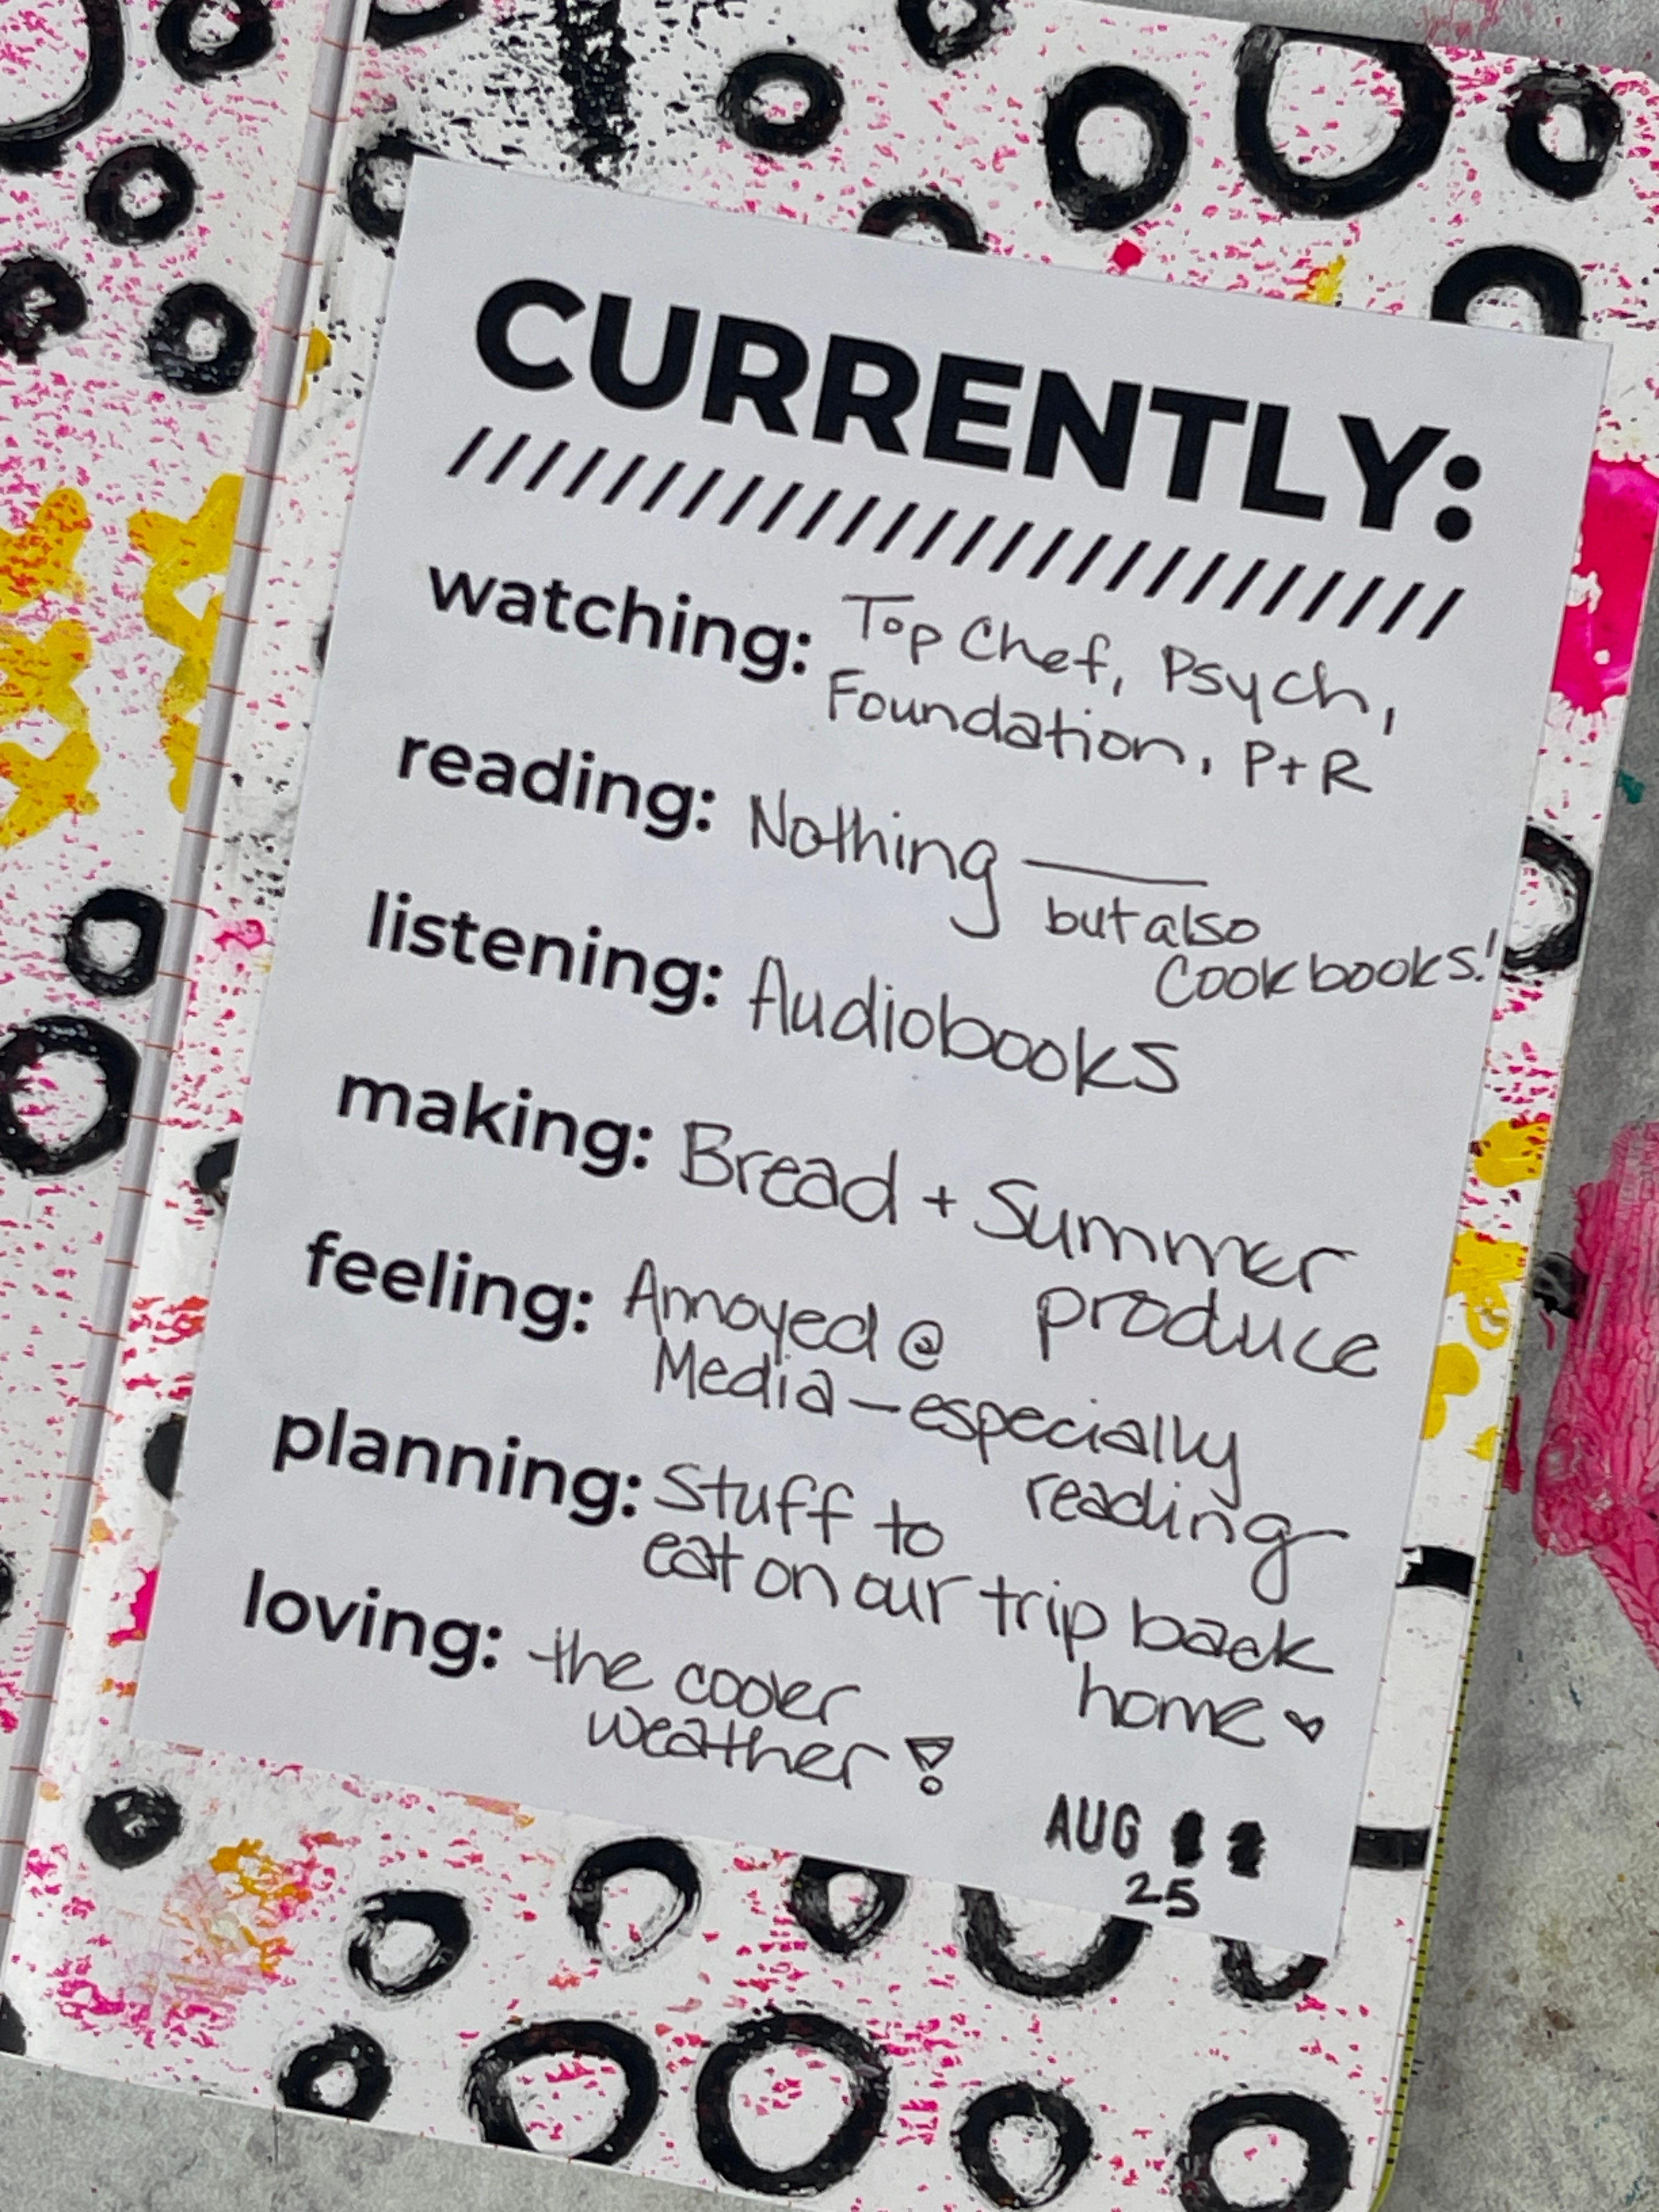 CURRENTLY:
////////////////////////////
watching: Top Chef, Psych,
Foundation, P+R
reading: Nothing —
but also
Cookbooks!
listening: Audiobooks
making: Bread + Summer
produce
feeling: Annoyed @
Media — especially
reading
planning: Stuff to
eat on our trip back
home ♥
loving: the cooler
weather!
AUG
25